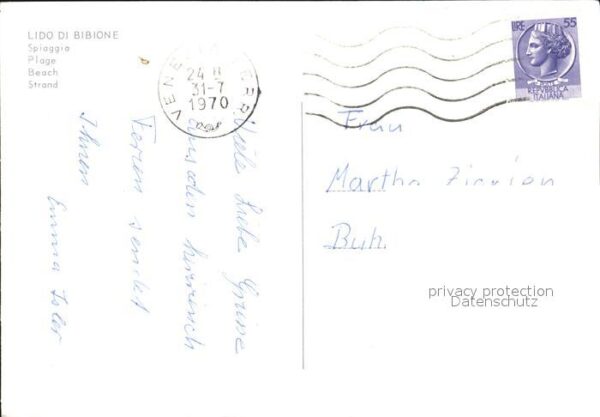 LIDO DI BIBIONE
Spiaggia
Plage
Beach
Strand
VENEZIA FERR.
24 H
31-7
1970
LIRE 55
REPVBBLICA
ITALIANA
Viele Liebe Grüsse
aus den
Ferien sendet
Ihnen
Emma
Frau
Martha
Buh.
privacy protection
Datenschutz